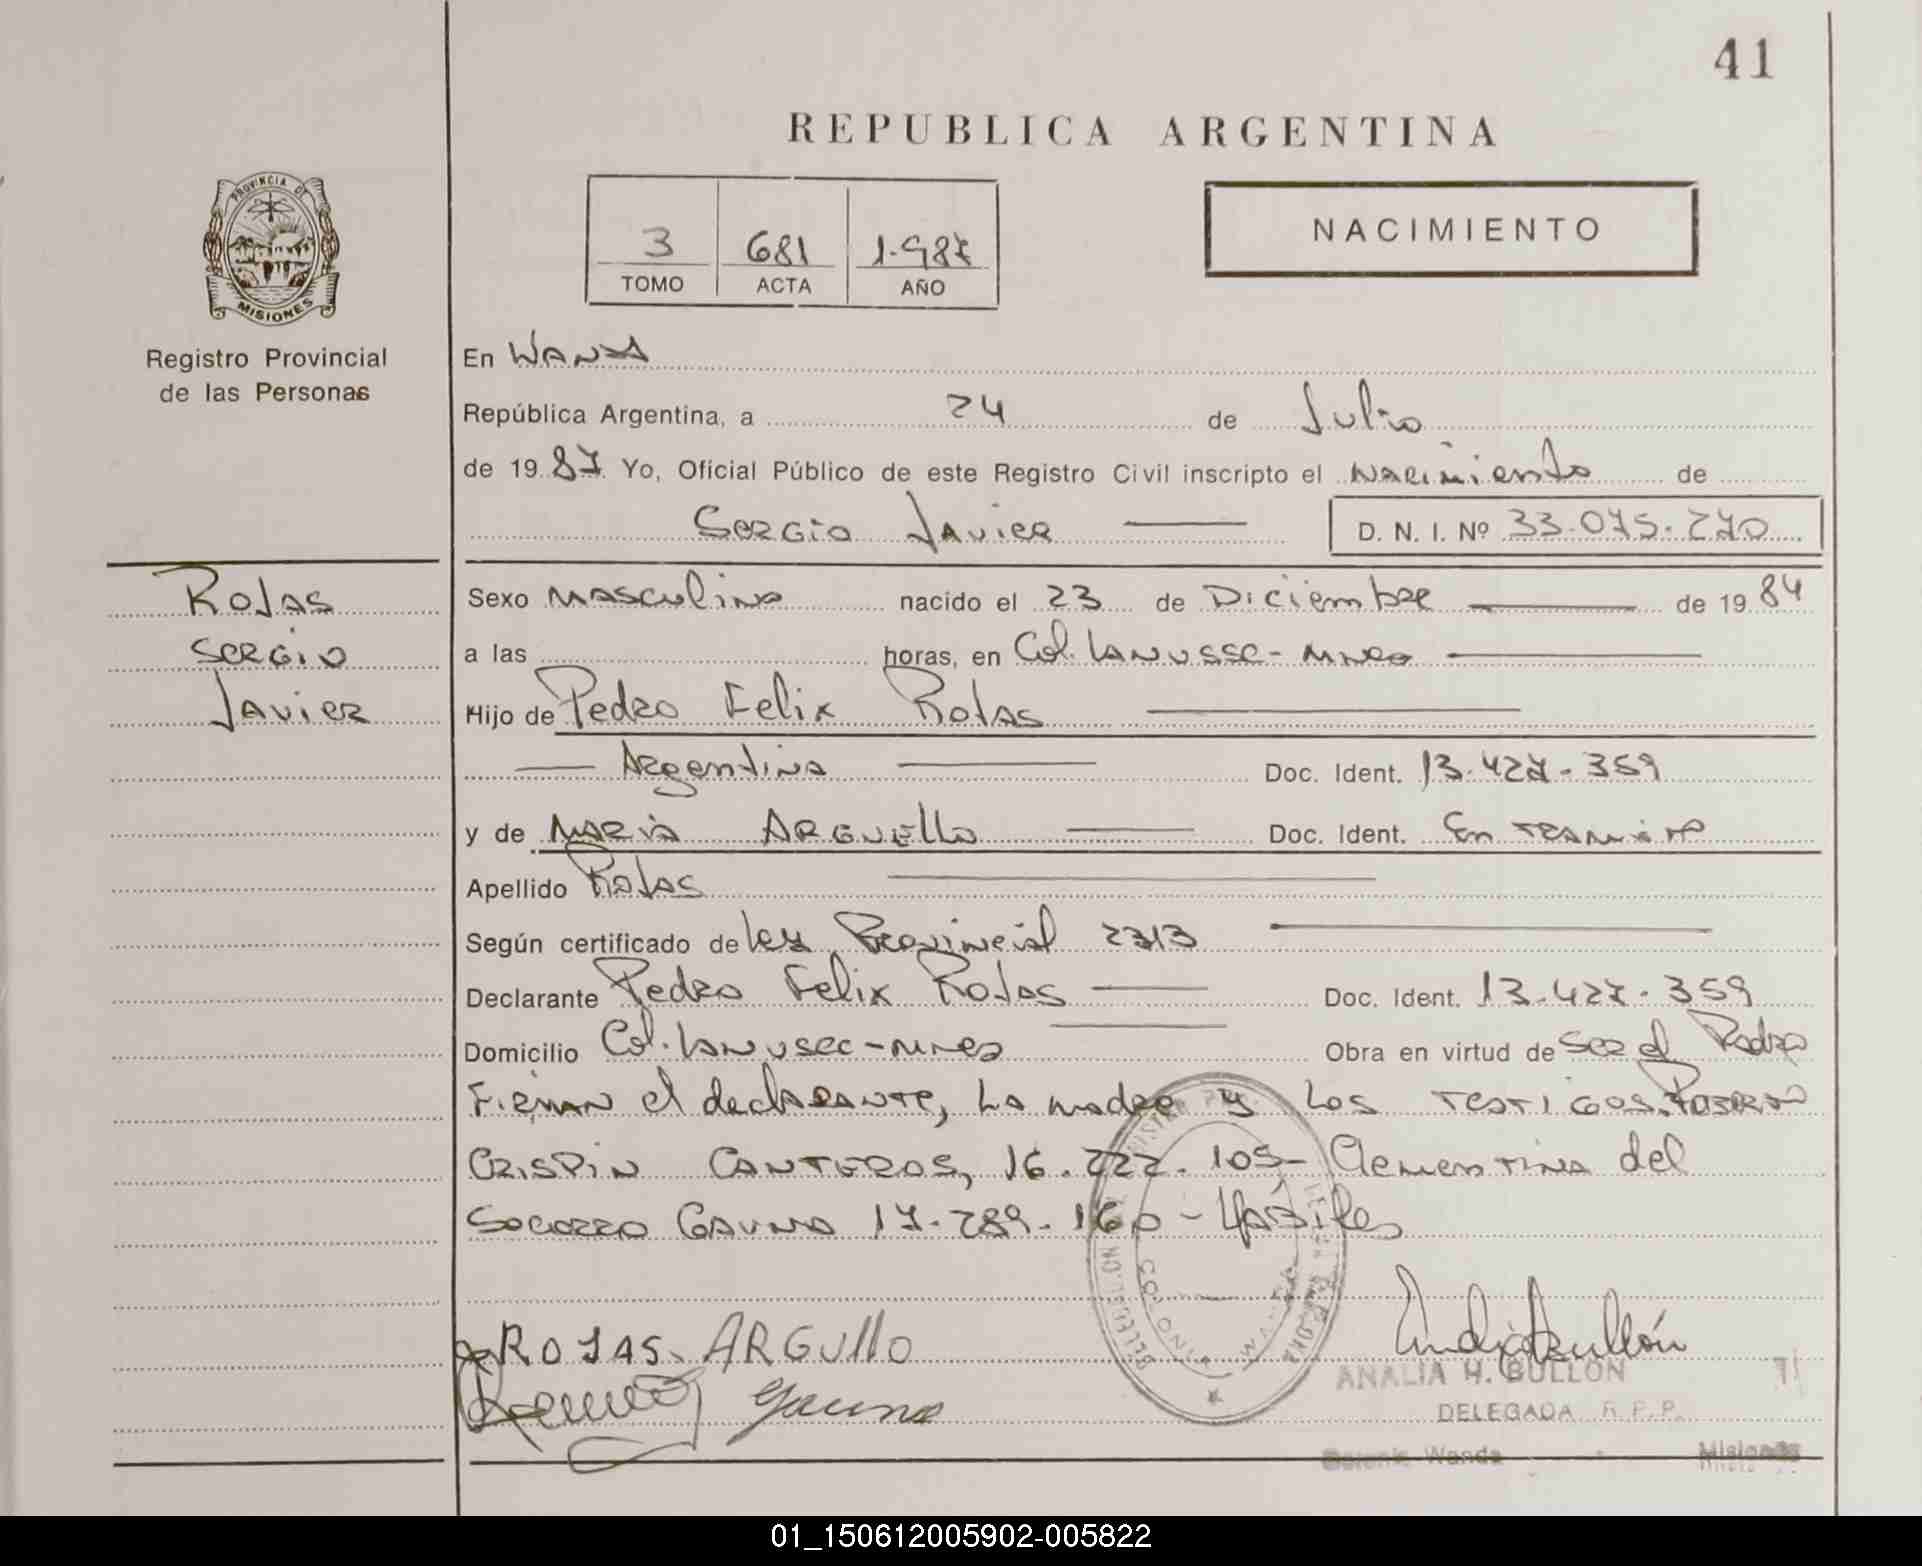 41
REPUBLICA ARGENTINA
PROVINCIA DE
MISIONES
Registro Provincial
de las Personas
3 681 1.987
TOMO ACTA AÑO
NACIMIENTO
En WANDA
República Argentina, a 24 de Julio
de 19 87 Yo, Oficial Público de este Registro Civil inscripto el Nacimiento de
Sergio Javier D. N. I. Nº 33.075.270
Rojas
Sergio
Javier
Sexo Masculino nacido el 23 de Diciembre de 19 84
a las horas, en Col. Lanusse-
Hijo de Pedro Felix Rojas
Argentina Doc. Ident. 13.427.359
y de Maria Arguello Doc. Ident. En Tramite
Apellido Rojas
Según certificado de Ley Provincial 2313
Declarante Pedro Felix Rojas Doc. Ident. 13.427.359
Domicilio Col. Lanusse- Obra en virtud de Ser el Padre
Firman el declarante, La madre y Los Testigos
Crispin Canteros, 16.222.105- Clementina del
Socorro Gauna 17.289.160 - Hábiles
ROJAS. ARGUllO
Gauna
COLONIA WANDA
ANALIA H. BULLON
DELEGADA R. P. P.
Colonia Wanda Misiones
01_150612005902-005822